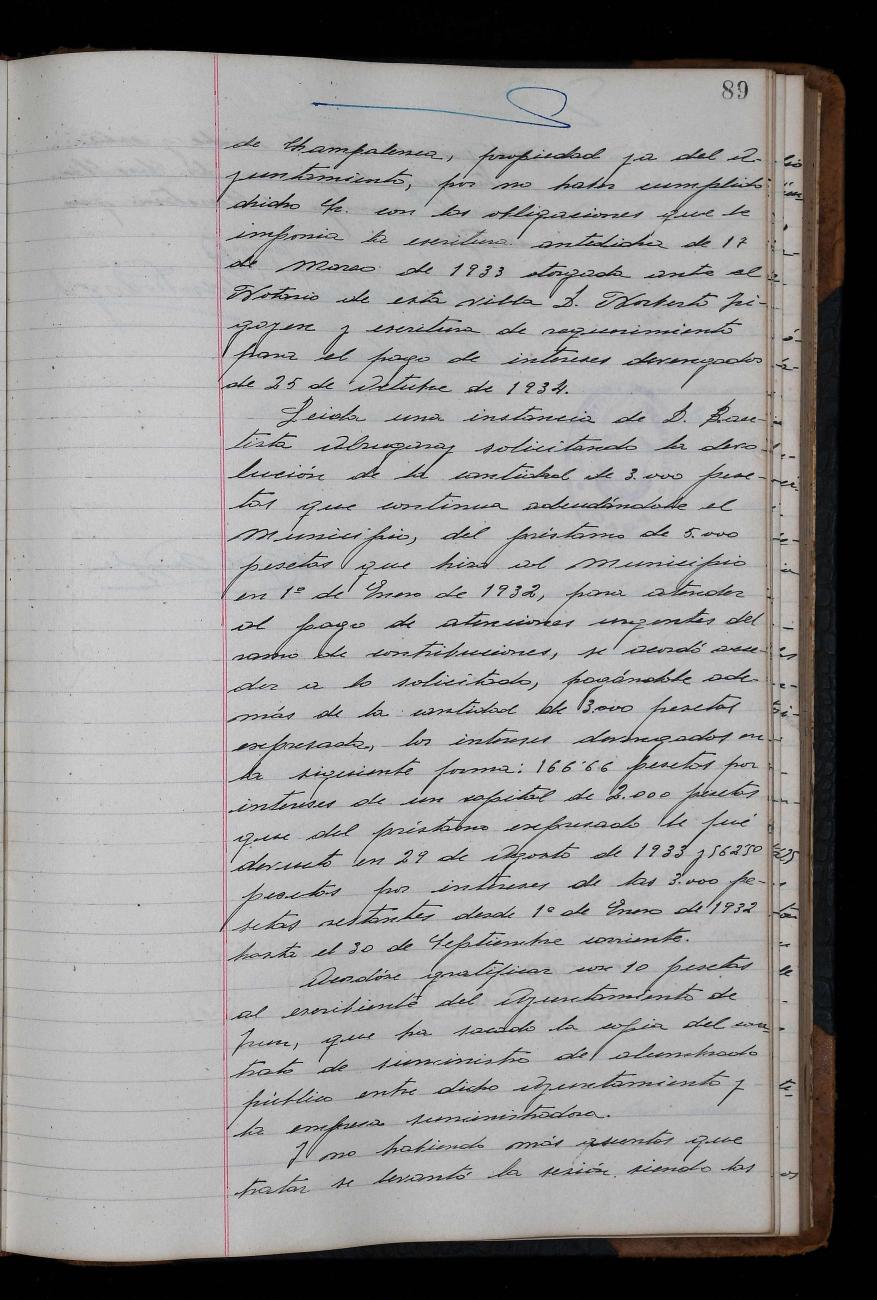 89
de Champalenea, propiedad ya del A-
yuntamiento, por no haber cumplido
dicho Sr. con las obligaciones que le
imponia la escritura antedicha de 17
de Marzo de 1933 otorgada ante el
Notario de esta villa D. Norberto
y escritura de requerimiento
para el pago de intereses devengados
de 25 de Octubre de 1934.
Leida una instancia de D. Bau-
tista solicitando la devo-
lución de la cantidad de 3.000 pese-
tas que continua adeudándole el
Municipio, del préstamo de 5.000
pesetas que hizo al Municipio
en 1º de Enero de 1932, para atender
al pago de atenciones urgentes del
ramo de contribuciones, se acordó acce-
der a lo solicitado, pagándole ade-
más de la cantidad de 3.000 pesetas
expresada, los intereses devengados en
la siguiente forma: 166'66 pesetas por
intereses de un capital de 2.000 pesetas
que del préstamo expresado le fué
devuelto en 29 de Agosto de 1933 y 562'50
pesetas por intereses de las 3.000 pe-
setas restantes desde 1º de Enero de 1932
hasta el 30 de Septiembre corriente.
Acordóse gratificar con 10 pesetas
al escribiente del Ayuntamiento de
Irun, que ha sacado la copia del con-
trato de suministro de alumbrado
público entre dicho Ayuntamiento y
la empresa suministradora.
Y no habiendo más asuntos que
tratar se levantó la sesión siendo las